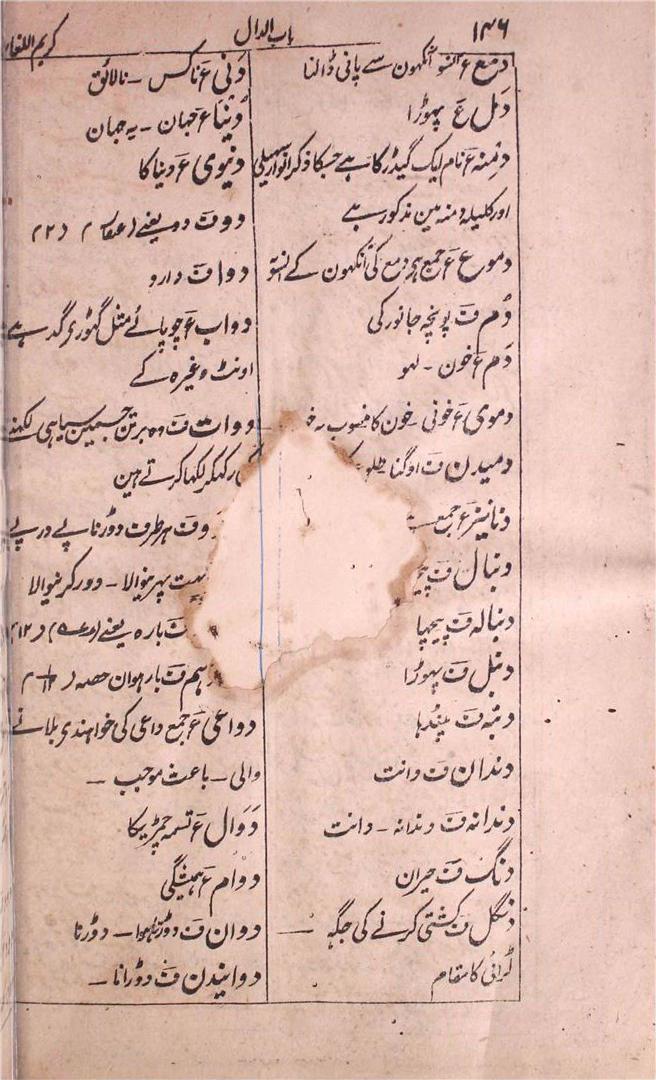 ۱۴۶
باب الدال
کریم اللغات
دمع ع آنسو آنکھون سے پانی ڈالنا
دمل ع پھوڑا
دمنہ ع نام ایک گیدڑ کا ہے جسکا ذکر انوار سہیلی
اور کلیلہ دمنہ مین مذکور ہے
دموع ع جمع ہے دمع کی آنکھون کے آنسو
دُم ف پونچھ جانور کی
دَم ع خون ۔ لہو
دموی ع خونی ۔ خون کا منسوب بہ
دمیدن ف اوگنا
دنانیر ع جمع
دنبال ف
دنبالہ ف پیچھا
دنبل ف پھوڑا
دنبہ ف مینڈھا
دندان ف دانت
دندانہ ف دندانہ ۔ دانت
دنگ ف حیران
دنگل ف کشتی کرنے کی جگہ
لڑائی کا مقام
دَنی ع ناکس ۔ نالائق
دُنیا ع جہان ۔ یہ جہان
دنیوی ع دنیا کا
دو ف دو یعنے
دوا ف دارو
دواب ع چوپائے مثل گھوڑی گدہے
اونٹ وغیرہ کے
دوات ف وہ برتن جسمین سیاہی لکھنے
رکھکر لکھا کرتے ہین
ف ہر طرف دوڑنا پے درپے
بہت پھرنیوالا ۔ دور کرنیوالا
ف بارہ یعنے
ف بارھوان حصہ
دواعی ع جمع داعی کی خواہندی بلانے
والی ۔ باعث موجب
دَوَال ع تسمہ چمڑیکا
دوام ع ہمیشگی
دوان ف دوڑتا ہوا ۔ دوڑنا
دوانیدن ف دوڑانا ۔